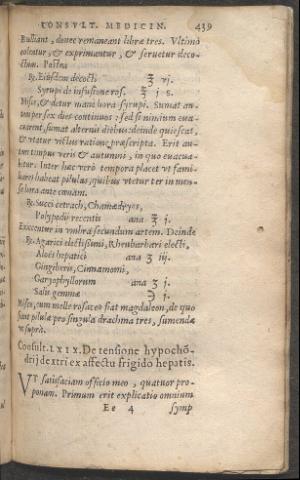 CONSVLT. MEDICIN. 439
Bulliant, donec remaneant libræ tres. Vltimò
colentur, & exprimantur, & seruetur deco-
ctum. Postea
℞. Eiusdem decocti ℥ vj.
Syrupi de infusione ros. ℥ j s.
Misce, & detur manè hora syrupi. Sumat an-
tem per sex dies continuos: sed si nimium eua-
cuarent, sumat alternis diebus: deinde quiescat,
& vtatur victus ratione præscripta. Erit au-
tem tempus veris & autumni, in quo euacua-
bitur. Inter hæc verò tempora placet vt fami-
liares habeat pilulas, quibus vtetur ter in men-
se hora ante cœnam.
℞. Succi cetrach, Chamædryes,
Polypodij recentis ana ℥ j.
Exiccentur in vmbra secundum artem. Deinde
℞. Agarici electissimi, Rheubarbari electi,
Aloës hepatici ana ℥ iij.
Gingeberis, Cinnamomi,
Garyophyllorum ana ʒ j.
Salis gemmæ ℈ j.
Misce, cum melle rosaceo fiat magdaleon, de quo
fiant pilulæ pro singula drachma tres, sumendæ
vt suprà.
Consult. LXIX. De tensione hypochō-
drij dextri ex affectu frigido hepatis.
VT satisfaciam officio meo, quatuor pro-
ponam. Primum erit explicatio omnium
Ee 4 symp